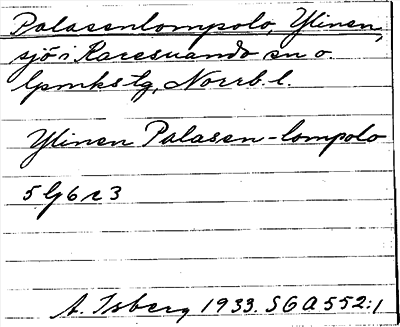 Palasenlompolo, Ylinen,
sjö i Karesuando sn o.
lpmks tg, Norrb. l.
Ylinen Palasen-lompolo
5 G 6 c 3
A. Isberg 1933. SGA 552:1